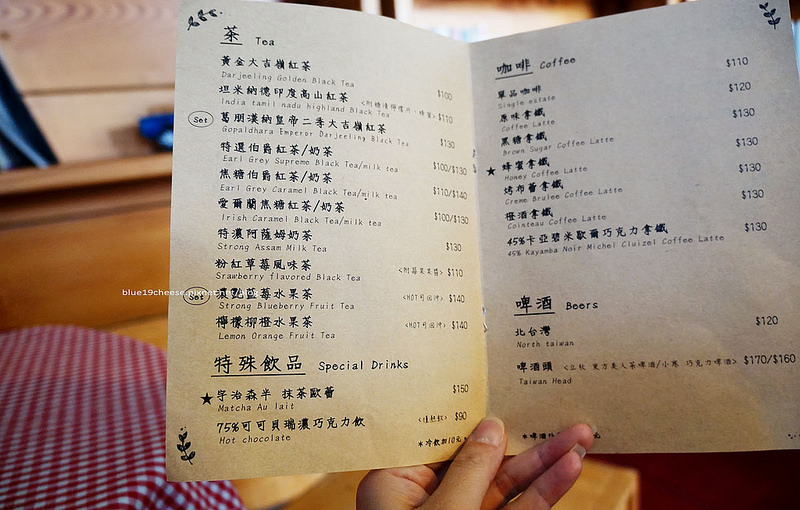 茶 Tea
黃金大吉嶺紅茶
Darjeeling Golden Black Tea $100
坦米納德印度高山紅茶
India tamil nadu highland Black Tea $110
Set 葛朋漢納皇帝二季大吉嶺紅茶
Gopaldhara Emperor Darjeeling Black Tea $130
特選伯爵紅茶/奶茶
Earl Grey Supreme Black Tea/milk tea $100/$130
焦糖伯爵紅茶/奶茶
Earl Grey Caramel Black Tea/milk tea $110/$140
愛爾蘭焦糖紅茶/奶茶
Irish Caramel Black Tea/milk tea $100/$130
特濃阿薩姆奶茶
Strong Assam Milk Tea $130
粉紅草莓風味茶 <附莓果果醬> $110
Srawberry flavored Black Tea
blue19cheese.pixnet
Set 濃郁藍莓水果茶 <HOT可回沖> $140
Strong Blueberry Fruit Tea
檸檬柳橙水果茶 <HOT可回沖> $140
Lemon Orange Fruit Tea
特殊飲品 Special Drinks
★宇治森半 抹茶歐蕾 $150
Matcha Au lait
75%可可貝瑞濃巧克力飲 $90
Hot chocolate
*冷飲加10元*
咖啡 Coffee
單品咖啡 $110
Single estate
原味拿鐵 $120
Coffee Latte
黑糖拿鐵 $130
Brown Sugar Coffee Latte
★ 蜂蜜拿鐵 $130
Honey Coffee Latte
烤布蕾拿鐵 $130
Creme Brulee Coffee Latte
橙酒拿鐵 $130
Cointeau Coffee Latte
45%卡亞碧米歐爾巧克力拿鐵 $130
45% Kayamba Noir Michel Cluizel Coffee Latte
啤酒 Beers
北台灣 $120
North taiwan
啤酒頭 <立秋 東方美人茶啤酒/小寒 巧克力啤酒> $170/$160
Taiwan Head
*啤酒